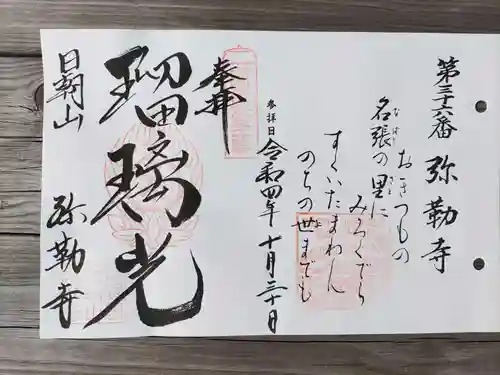 第三十六番 弥勒寺
おきつもの
名張の里に
なばり
さと
みろくでら
すくいたまわん
のちの世までも
よ
参拝日 令和四年十月三十日
奉拝
瑠璃光
日朝山 弥勒寺